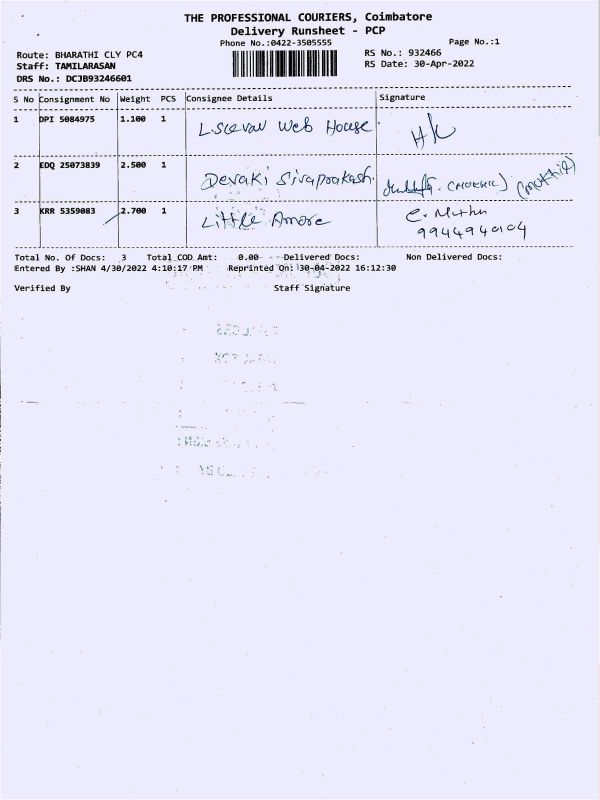 THE PROFESSIONAL COURIERS, Coimbatore
Delivery Runsheet - PCP
Phone No.:0422-3505555
Page No.:1
Route: BHARATHI CLY PC4
RS No.: 932466
Staff: TAMILARASAN
RS Date: 30-Apr-2022
DRS No.: DCJB93246601
S No Consignment No Weight PCS Consignee Details Signature
1 DPI 5084975 1.100 1 Web House
2 EDQ 25073839 2.500 1 Devaki Sivaprakash.
3 KRR 5359083 2.700 1 Little Amore C. Muthu
9944940104
Total No. Of Docs: 3 Total COD Amt: 0.00 Delivered Docs: Non Delivered Docs:
Entered By :SHAN 4/30/2022 4:10:17 PM Reprinted On: 30-04-2022 16:12:30
Verified By Staff Signature